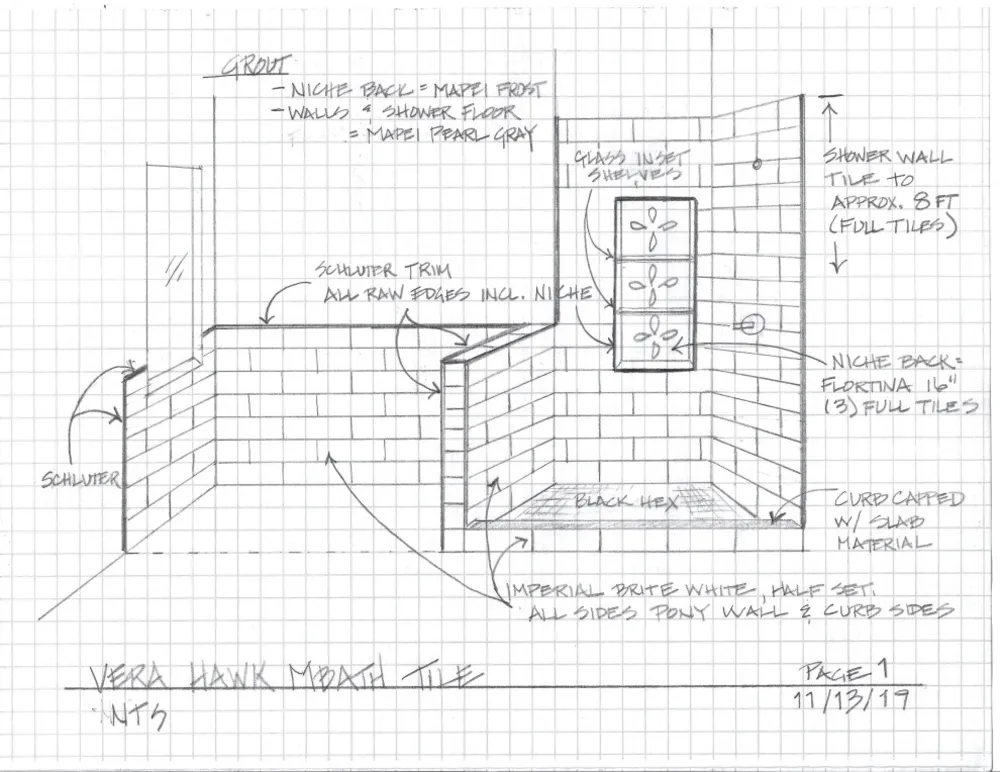 GROUT
- NICHE BACK = MAPEI FROST
- WALLS & SHOWER FLOOR
= MAPEI PEARL GRAY
GLASS INSET
SHELVES
SHOWER WALL
TILE TO
APPROX. 8 FT
(FULL TILES)
SCHLUTER TRIM
ALL RAW EDGES INCL. NICHE
NICHE BACK =
FLORTINA 16"
(3) FULL TILES
SCHLUTER
BLACK HEX
CURB CAPPED
W/ SLAB
MATERIAL
IMPERIAL BRITE WHITE, HALF SET.
ALL SIDES PONY WALL & CURB SIDES
VERA HAWK MBATH TILE
NTS
PAGE 1
11/13/19